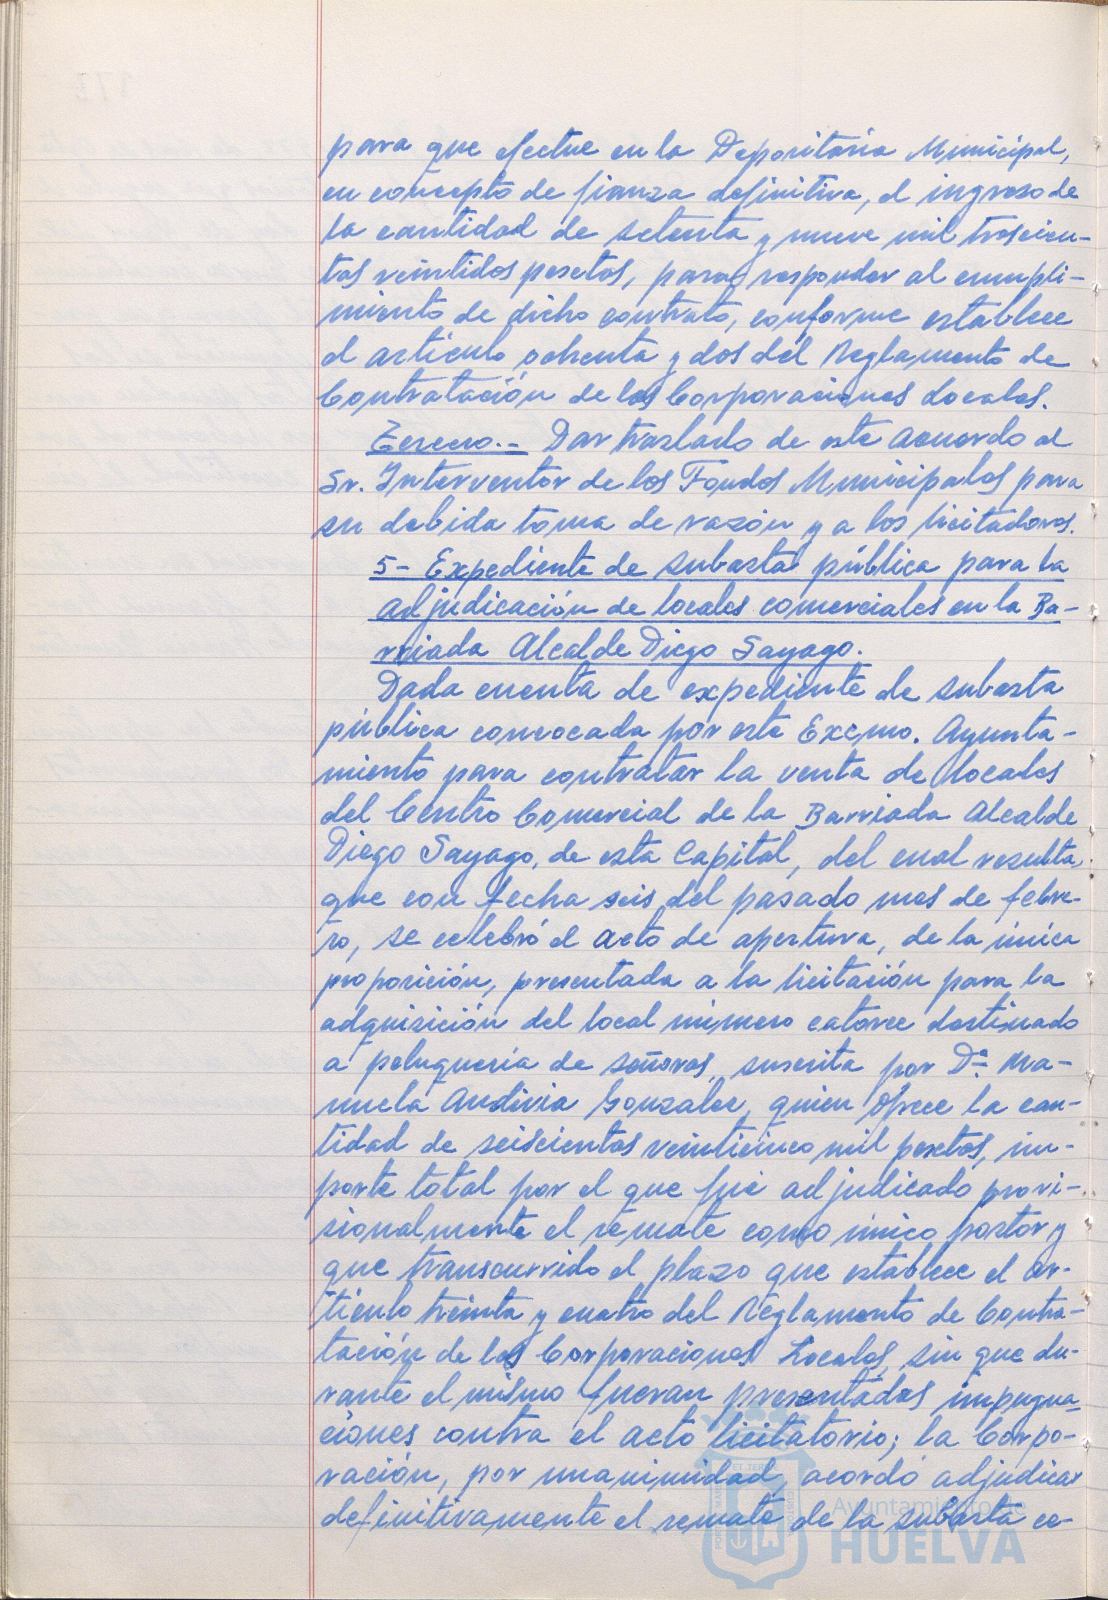 para que efectue en la Depositaria Municipal,
en concepto de fianza definitiva, el ingreso de
la cantidad de setenta y nueve mil trescien-
tas veintidos pesetas, para responder al cumpli-
miento de dicho contrato, conforme establece
el artículo ochenta y dos del Reglamento de
Contratación de las Corporaciones Locales.
Tercero.- Dar traslado de este acuerdo al
Sr. Interventor de los Fondos Municipales para
su debida toma de razón y a los licitadores.
5- Expediente de subasta pública para la
adjudicación de locales comerciales en la Ba-
rriada Alcalde Diego Sayago.
Dada cuenta de expediente de subasta
pública convocada por este Excmo. Ayunta-
miento para contratar la venta de locales
del Centro Comercial de la Barriada Alcalde
Diego Sayago, de esta Capital, del cual resulta,
que con fecha seis del pasado mes de febre-
ro, se celebró el acto de apertura, de la única
proposición, presentada a la licitación para la
adquisición del local número catorce destinado
a peluquería de señoras, suscrita por Dª. Ma-
nuela Andivia Gonzalez, quien ofrece la can-
tidad de seiscientas veinticinco mil pesetas, im-
porte total por el que fué adjudicado provi-
sionalmente el remate como único postor y
que transcurrido el plazo que establece el ar-
tículo treinta y cuatro del Reglamento de Contra-
tación de las Corporaciones Locales, sin que du-
rante el mismo fueran presentadas impugna-
ciones contra el acto licitatorio; la Corpo-
ración, por unanimidad, acordó adjudicar
definitivamente el remate de la subasta ce-
Ayuntamiento de
HUELVA